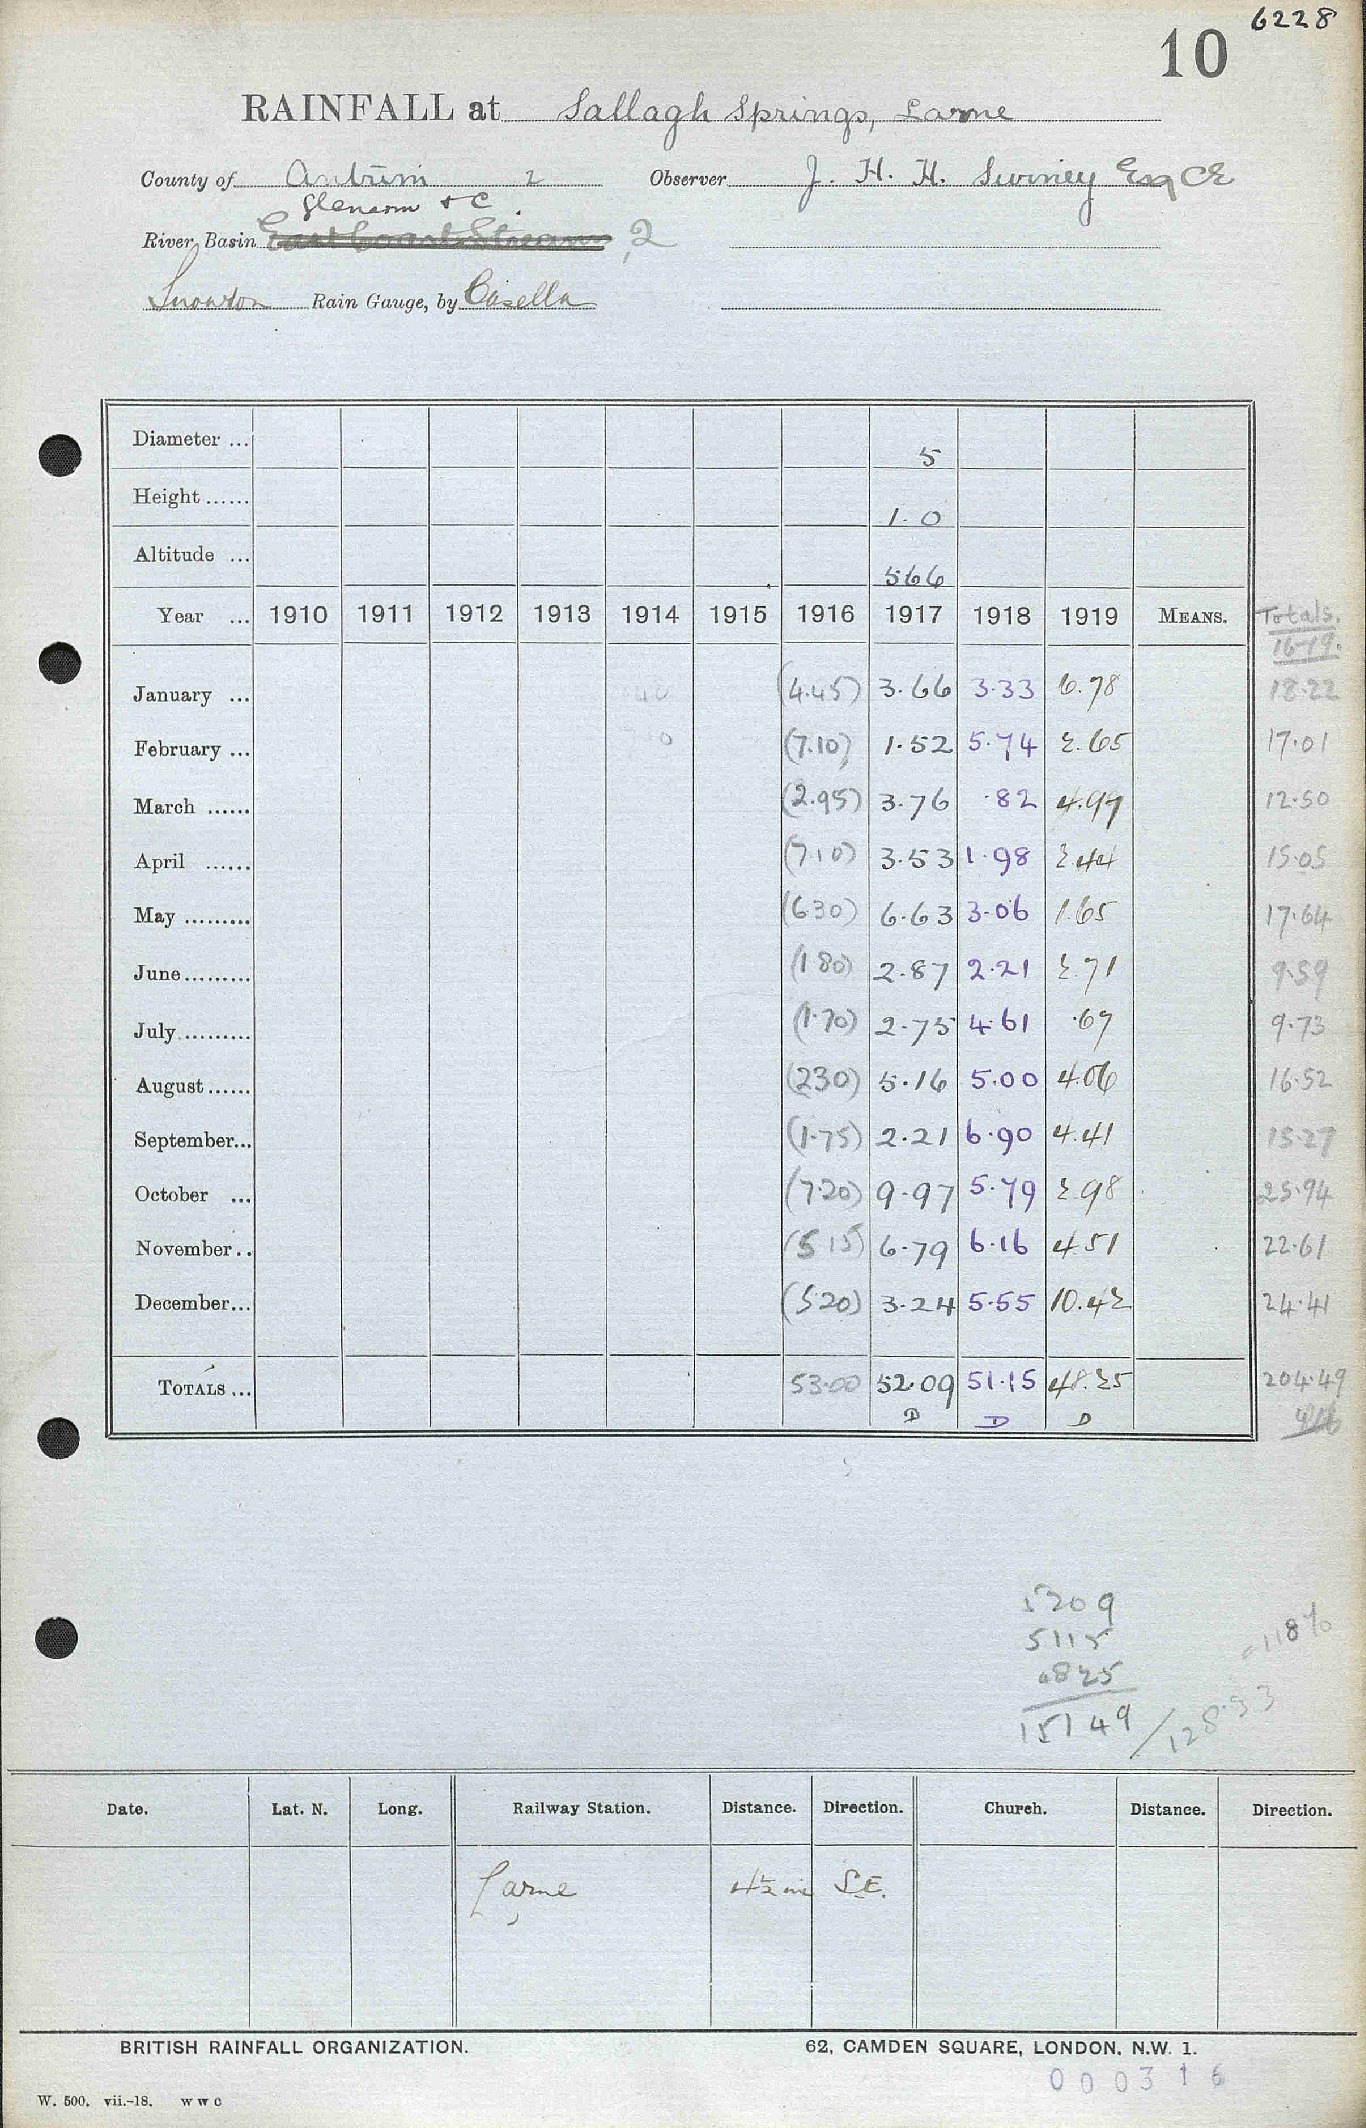 6228
10
RAINFALL at Sallagh Springs, Larne
County of Antrim 2 Observer J. H. H. Swiney Esq CE
Glenarm & C.
River Basin East Coast Streams, 2
Snowdon Rain Gauge, by Casella
Diameter ... 5
Height ...... 1.0
Altitude ... 566
Year ... 1910 1911 1912 1913 1914 1915 1916 1917 1918 1919 MEANS. Totals.
16-19.
January ... (4.45) 3.66 3.33 6.78 18.22
February ... (7.10) 1.52 5.74 2.65 17.01
March ...... (2.95) 3.76 .82 4.97 12.50
April ...... (7.10) 3.53 1.98 2.44 15.05
May ......... (6.30) 6.63 3.06 1.65 17.64
June......... (1.80) 2.87 2.21 2.71 9.59
July......... (1.70) 2.75 4.61 .67 9.73
August...... (2.30) 5.16 5.00 4.06 16.52
September... (1.75) 2.21 6.90 4.41 15.27
October ... (7.20) 9.97 5.79 2.98 25.94
November.. (5.15) 6.79 6.16 4.51 22.61
December... (5.20) 3.24 5.55 10.42 24.41
TOTALS ... 53.00 52.09 51.15 48.25 204.49
D D D
5209
5115
4825
15149 / 128.53
= 118%
Date. Lat. N. Long. Railway Station. Distance. Direction. Church. Distance. Direction.
Larne 4½ mi S.E.
BRITISH RAINFALL ORGANIZATION. 62, CAMDEN SQUARE, LONDON. N.W. 1.
000316
W. 500. vii.-18. w w c